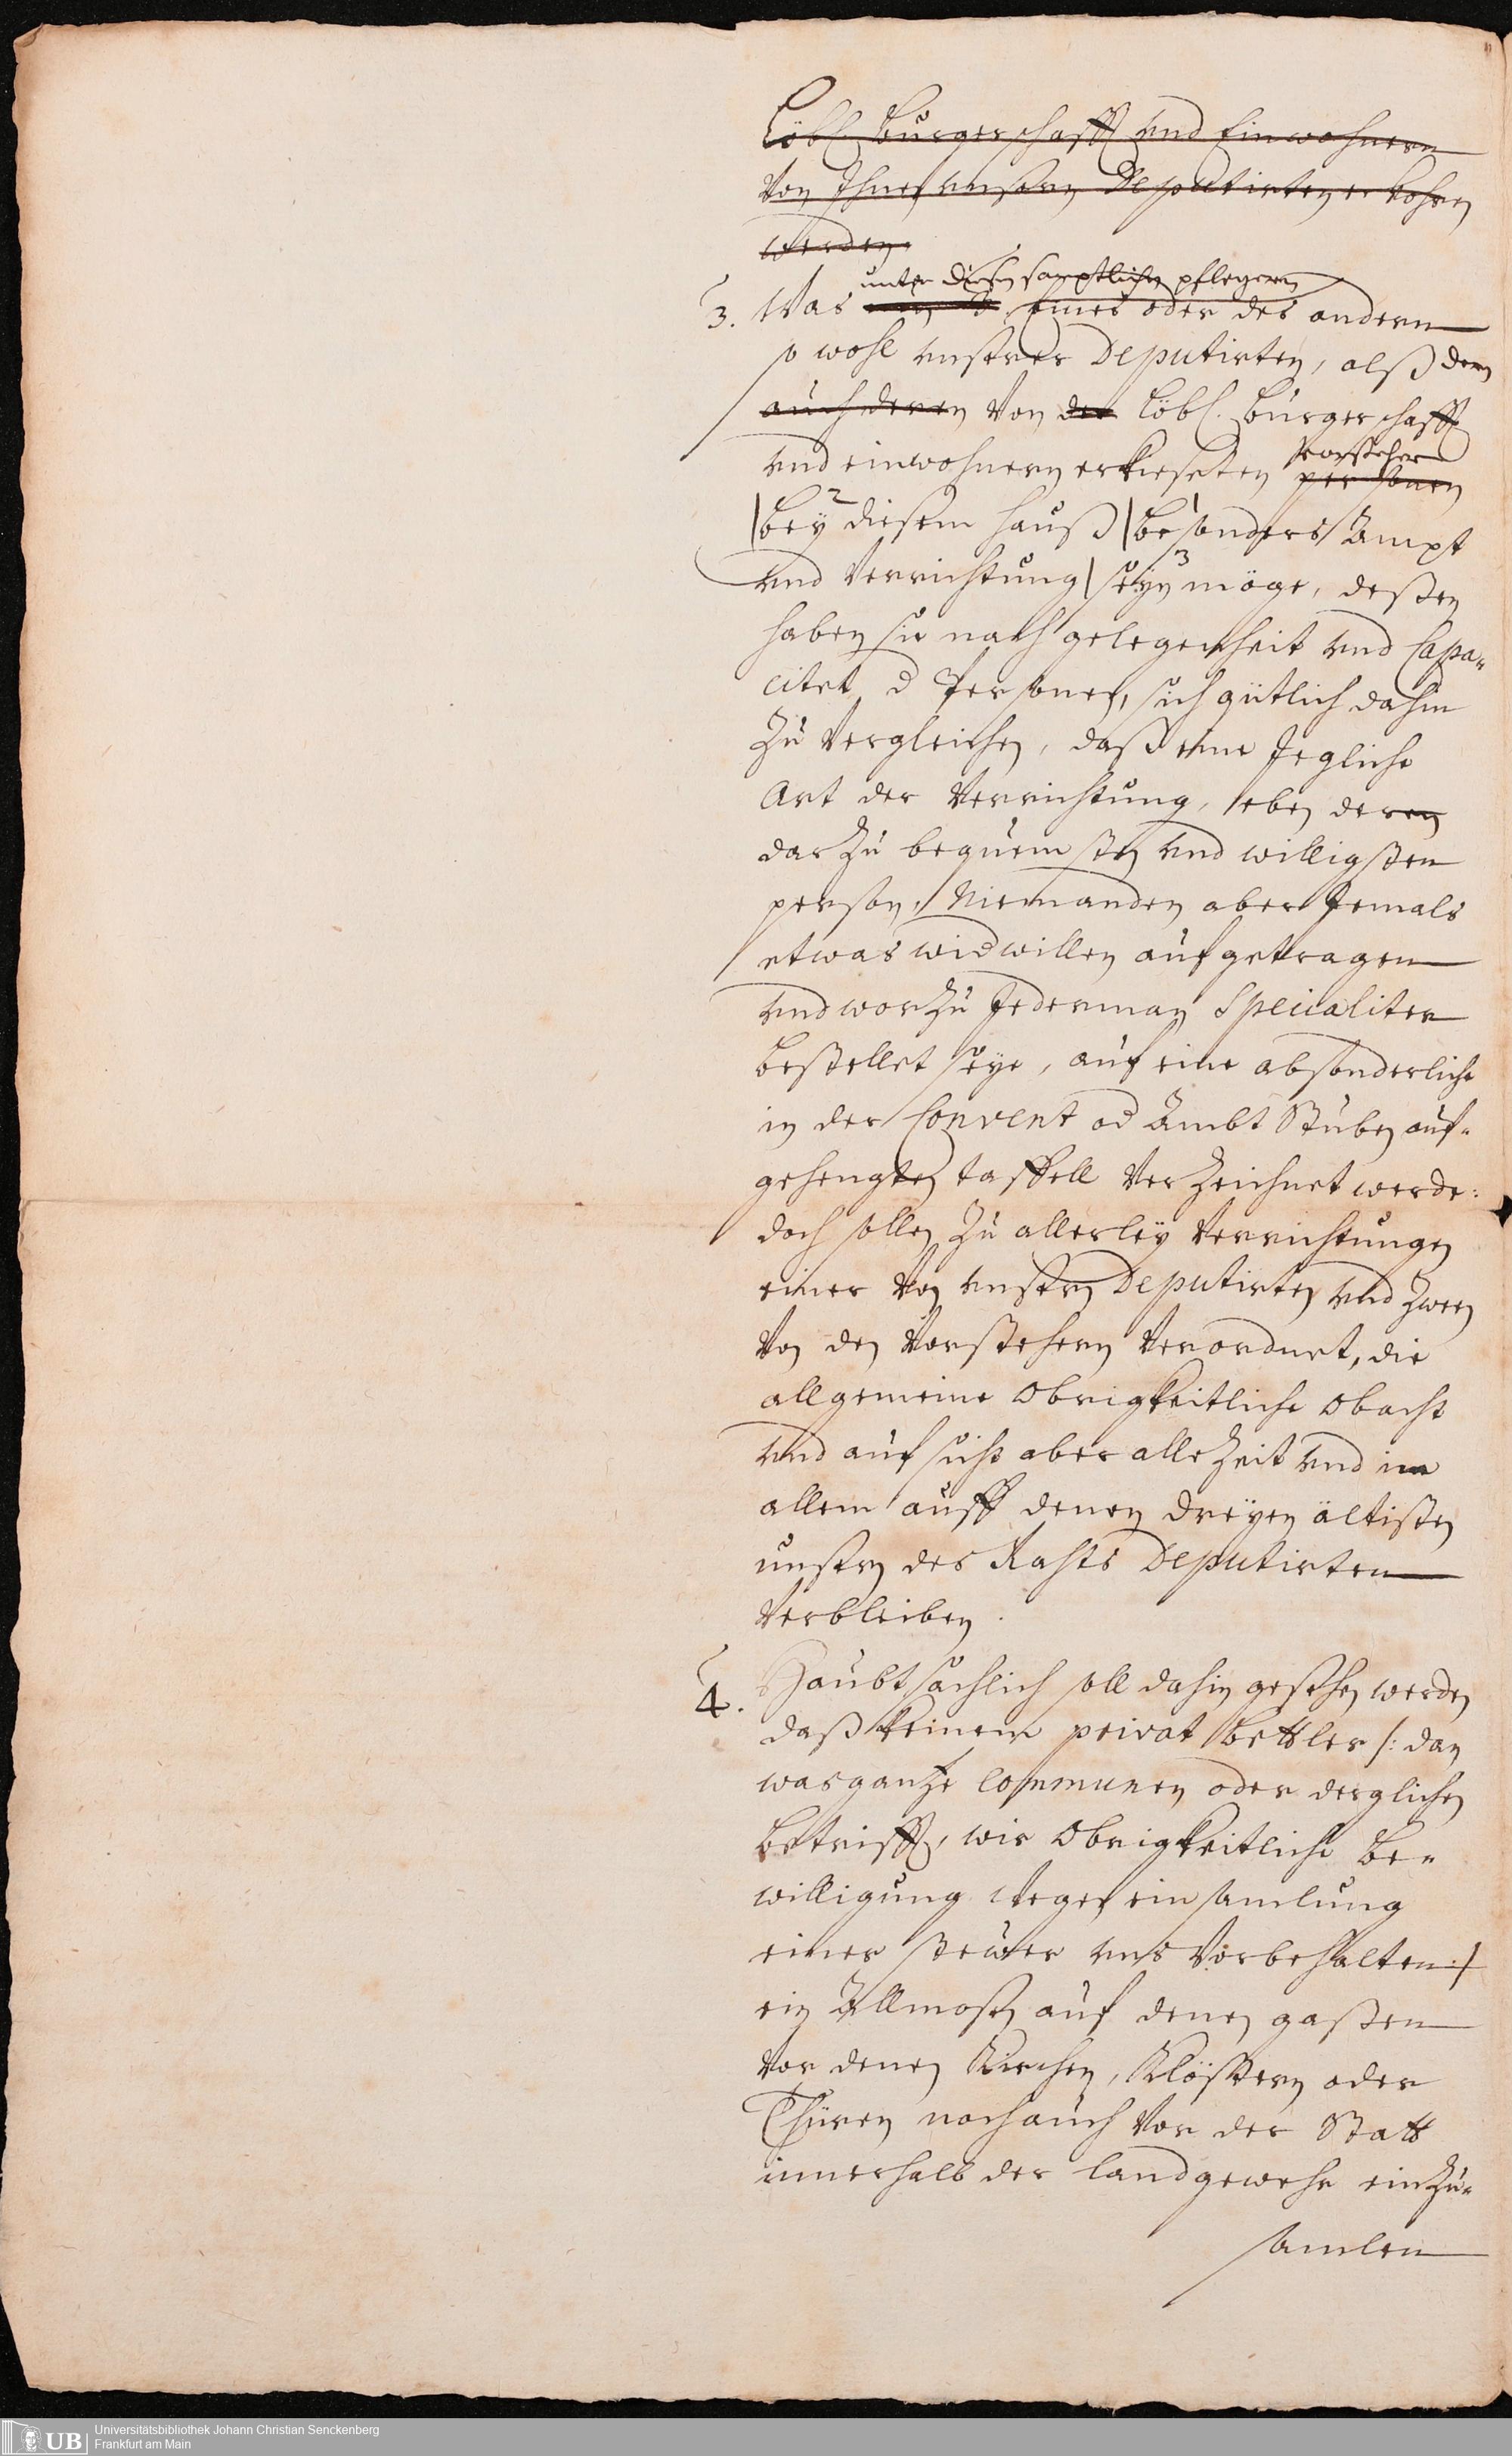 Löbl. Burgerschafft vnd Einwohnern
Von Ihnen vnsern Deputirten erkohren
werden.
unter diesen samptlichen pflegern
3. Was eines oder des andern
so wohl vnserer Deputirten, alß dern
auch deren von der Löbl. Burgerschafft
vnd einwohnern erkieseten personen
vorsteher
2 1
bey diesem hauß besonders Ampt
3
vnd Verrichtung seyn möge, deßen
haben sie nach gelegenheit vnd Capa-
citet d Personen, sich gütlich dahin
Zu Vergleichen, daß eine Jegliche
Art der Verrichtung, eben deren
darzu bequemsten vnd willigsten
person, Niemanden aber Jemals
etwas wid willen aufgetragen
vnd worzu Jederman Specialiter
bestellet seye, auf eine absonderliche
in der Convent od Ambt Stuben auf-
gehengten taffell Verzeichnet werde:
doch sollen Zu allerley Verrichtungen
einer von vnsern Deputirten vnd Zween
Von den Vorstehern Verordnet, die
allgemeine Obrigkeitliche Obacht
vnd aufsicht aber alle Zeit vnd in
allem auff denen dreyen ältisten
unsern des Rahts Deputirten
Verbleiben.
4. Haubtsächlich soll dahin gesehen werden
daß keinem privat bettler /: dan
was gantze Communen oder derglichen
betrifft, wir Obrigkeitliche Be-
willigung wegen einsamlung
einer steuer vns Vorbehalten :/
ein Allmosen auf denen gaßen
Vor denen Kirchen, Klöstern oder
Thüren noch auch Vor der Statt
innerhalb der landgewehr einzu-
samlen
Universitätsbibliothek Johann Christian Senckenberg
UB Frankfurt am Main